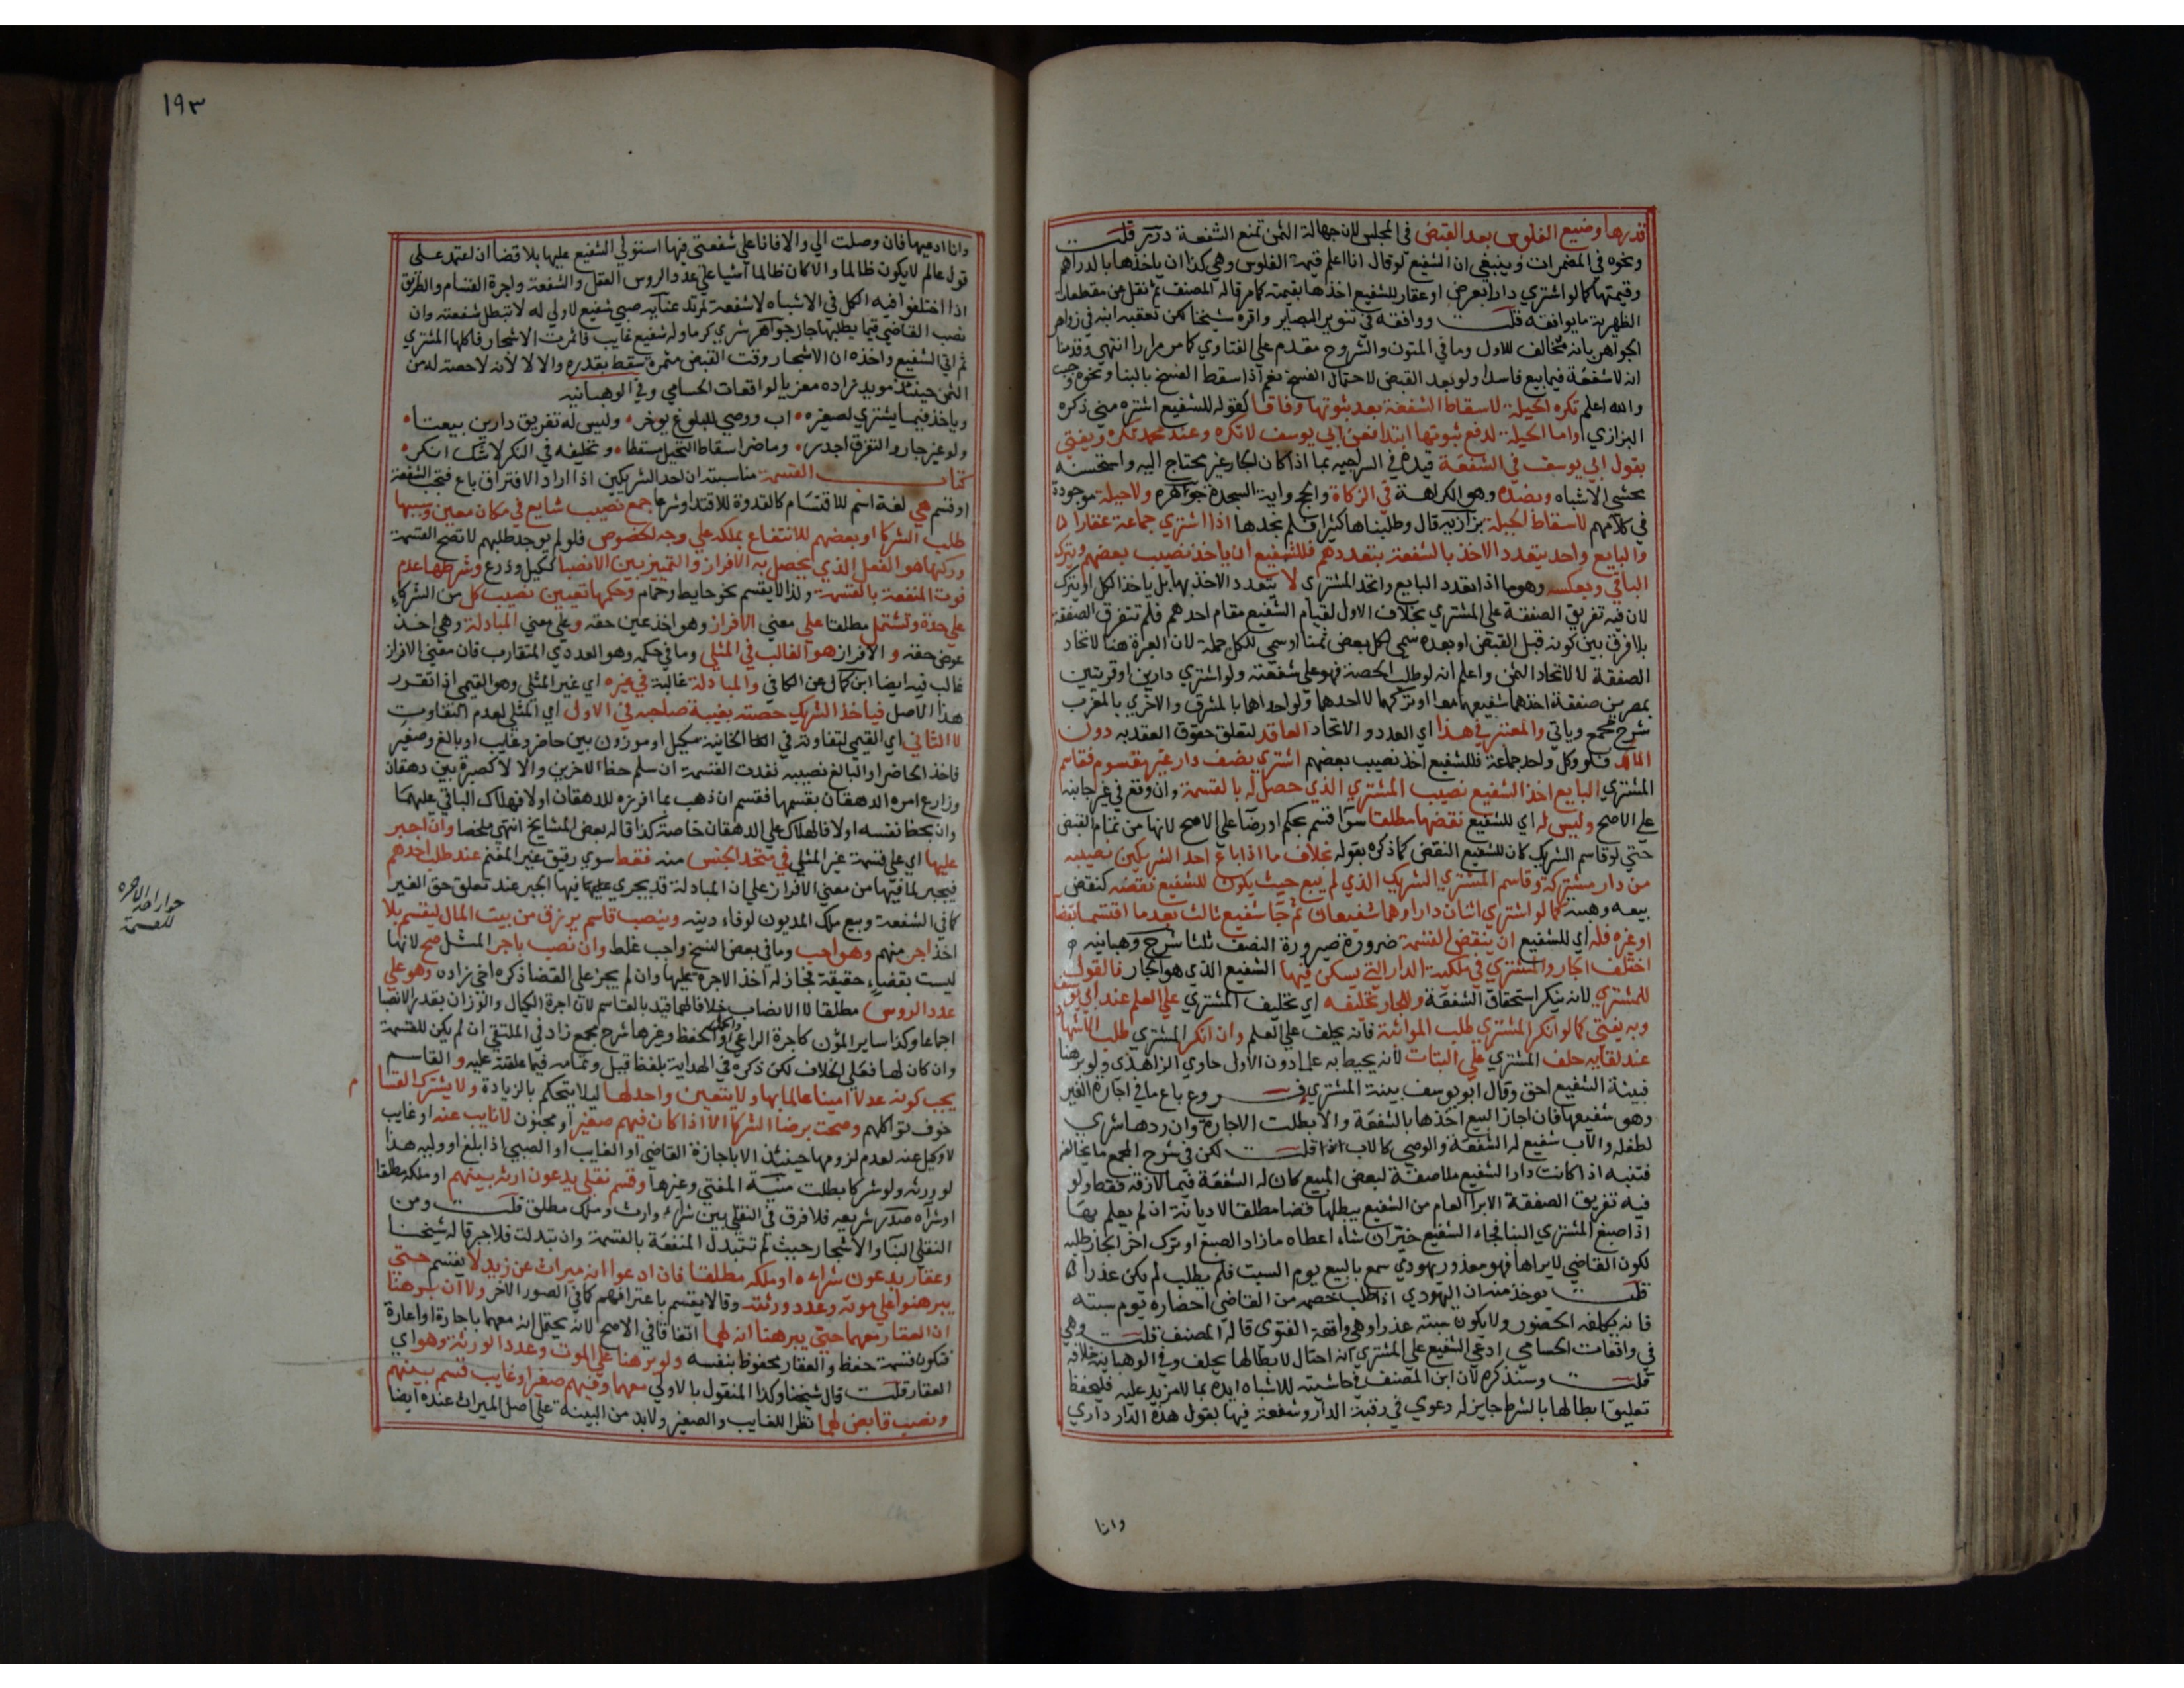 قدرها وضيع الفلوس بعد القبض في المجلس لان جهالة الثمن تمنع الشفعة درر قلت
ونحوه في المضمرات وينبغي ان الشفيع لو قال انا اعلم قيمة الفلوس وهي كذا ان ياخذها بالدراهم
وقيمتها كما لو اشتري دارا بعرض او عقار للشفيع اخذها بقيمته كما مر قاله المصنف ثم نقل عن مقطعات
الظهرية ما يوافقه قلت ووافقه في تنوير البصاير واقره شيخنا لكن تعقبه ابنه في زواهر
الجواهر بانه مخالف للاول وما في المتون والشروح مقدم علي الفتاوي كما مر مرارا انتهي وقدمنا
انه لا شفعة فيما بيع فاسدا ولو بعد القبض لاحتمال الفسخ نعم اذا سقط الفسخ بالبنا ونحوه وجبت
والله اعلم تكره الحيلة لاسقاط الشفعة بعد ثبوتها وفاقا كقوله للشفيع اشتره مني ذكره
البزازي واما الحيلة لدفع ثبوتها ابتدا فعن ابي يوسف لا تكره وعند محمد تكره ويفتي
بقول ابي يوسف في الشفعة قيده في السراجيه بما اذا كان الجار غير محتاج اليه واستحسنه
محشي الاشباه وبضده وهو الكراهة في الزكاة والحج واية السجدة جواهره ولا حيلة موجودة
في كلامهم لاسقاط الحيلة بزازيه قال وطلبناها كثيرا فلم نجدها اذا اشتري جماعة عقارا
والبايع واحد يتعدد الاخذ بالشفعة بتعددهم فللشفيع ان ياخذ نصيب بعضهم ويترك
الباقي وبعكسه وهو ما اذا تعدد البايع واتحد المشتري لا يتعدد الاخذ بها بل ياخذ الكل او يترك
لان فيه تفريق الصفقة علي المشتري بخلاف الاول لقيام الشفيع مقام احدهم فلم تتفرق الصفقة
بلا فرق بين كونه قبل القبض او بعده سمي لكل بعض ثمنا او سمي للكل جملة لان العبرة هنا لاتحاد
الصفقة لا لاتحاد الثمن واعلم انه لو طلب الحصة فهو علي شفعته ولو اشتري دارين او قريتين
بمصرين صفقة اخذهما شفيعهما معا او تركهما لا احدهما ولو احداهما بالمشرق والاخري بالمغرب
شرح مجمع وياتي والمعتبر في هذا اي العدد والاتحاد العاقد لتعلق حقوق العقد به دون
المالك فلو وكل واحد جماعة فللشفيع اخذ نصيب بعضهم اشتري نصف دار غير مقسوم فقاسم
المشتري البايع اخذ الشفيع نصيب المشتري الذي حصل له بالقسمة وان وقع في غير جانبه
علي الاصح وليس له اي للشفيع نقضها مطلقا سوا قسم بحكم او رضا علي الاصح لانها من تمام القبض
حتي لو قاسم الشريك كان للشفيع النقض كما ذكره بقوله بخلاف ما اذا باع احد الشريكين نصيبه
من دار مشتركة وقاسم المشتري الشريك الذي لم يبع حيث يكون للشفيع نقضه كنقض
بيعه وهبته كما لو اشتري اثنان دارا وهما شفيعان ثم جا شفيع ثالث بعد ما اقتسما بقضا
او غيره فله اي للشفيع ان ينقض القسمة ضرورة صيرورة النصف ثلثا شرح وهبانيه
اختلف الجار والمشتري في ملكية الدار التي يسكن فيها الشفيع الذي هو الجار فالقول
للمشتري لانه ينكر استحقاق الشفعة وللجار تحليفه اي تحليف المشتري علي العلم عند ابي يوسف
وبه يفتي كما لو انكر المشتري طلب المواثبة فانه يحلف علي العلم وان انكر المشتري طلب الاشهاد
عند لقايه حلف المشتري علي البتات لانه يحيط به علما دون الاول حاوي الزاهدي ولو برهنا
فبينة الشفيع احق وقال ابو يوسف بينة المشتري فروع باع ما في اجارة الغير
وهو شفيعها فان اجاز البيع اخذها بالشفعة والا بطلت الاجارة وان ردها شري
لطفله والاب شفيع له الشفعة والوصي كالاب قلت لكن في شرح المجمع ما يخالفه
فتنبه اذا كانت دار الشفيع ملاصقة لبعض المبيع كان له الشفعة فيما لازقه فقط ولو
فيه تفريق الصفقة الابرا العام من الشفيع يبطلها قضا مطلقا لا ديانة ان لم يعلم بها
اذا صبغ المشتري البنا فجاء الشفيع خير ان شاء اعطاه ما زاد الصبغ او ترك اخر الجار طلبه
لكون القاضي لا يراها فهو معذور يهودي سمع بالبيع يوم السبت فلم يطلب لم يكن عذرا
قلت يوخذ منه ان اليهودي اذا طلب خصمه من القاضي احضاره يوم سبته
فانه يكلفه الحضور ولا يكون سبته عذرا وهي واقعة الفتوي قاله المصنف قلت وهي
في واقعات الحسامي ادعي الشفيع علي المشتري انه احتال لابطالها يحلف وفي الوهبانية خلافه
قلت وسنذكره لان ابن المصنف في حاشيته للاشباه ايده بما لا مزيد عليه فليحفظ
تعليق ابطالها بالشرط جايز له دعوي في رقبة الدار وشفعة فيها يقول هذه الدار داري
وانا
١٩٣
وانا ادعيها فان وصلت الي والا فانا علي شفعتي فيها استولي الشفيع عليها بلا قضا ان اعتمد علي
قول عالم لا يكون ظالما والا كان ظالما اشيا علي عدد الروس العقل والشفعة واجرة القسام والطريق
اذا اختلفوا فيه الكل في الاشباه لا شفعة لمرتد عنايه صبي شفيع لا ولي له لا تبطل شفعته وان
نصب القاضي قيما يطلبها جاز جواهر شري كرما وله شفيع غايب فاثمرت الاشجار فاكلها المشتري
ثم اتي الشفيع واخذه ان الاشجار وقت القبض مثمرة سقط بقدره والا لا لانه لا حصة له من
الثمن حينئذ مويد زاده معزيا لواقعات الحسامي وفي الوهبانيه
وياخذ فيما يشتري لصغيره اب ووصي للبلوغ يوخر وليس له تفريق دارين بيعتا
ولو غير جار والتفرق اجدر وما ضر اسقاط التحيل مسقطا وتحليفه في النكر لا شك انكر
كتاب القسمة مناسبته ان احد الشريكين اذا اراد الافتراق باع فتجب الشفعة
او قسم هي لغة اسم للاقتسام كالقدوة للاقتدا وشرعا جمع نصيب شايع في مكان معين وسببها
طلب الشركا او بعضهم للانتفاع بملكه علي وجه الخصوص فلو لم يوجد طلبهم لا تصح القسمة
وركنها هو الفعل الذي يحصل به الافراز والتمييز بين الانصبا ككيل وذرع وشرطها عدم
فوت المنفعة بالقسمة ولذا لا يقسم نحو حايط وحمام وحكمها تعيين نصيب كل من الشركاء
علي حدة وتشتمل مطلقا علي معني الافراز وهو اخذ عين حقه وعلي معني المبادلة وهي اخذ
عوض حقه والافراز هو الغالب في المثلي وما في حكمه وهو العددي المتقارب فان معني الافراز
غالب فيه ايضا ابن كمال عن الكافي والمبادلة غالبة في غيره اي غير المثلي وهو القيمي اذا تقرر
هذا الاصل فياخذ الشريك حصته بغيبة صاحبه في الاول اي المثلي لعدم التفاوت
لا الثاني اي القيمي لتفاوته في الخانية مكيل او موزون بين حاضر وغايب او بالغ وصغير
فاخذ الحاضر او البالغ نصيبه نفدت القسمة ان سلم حظ الاخرين والا لا كصبرة بين دهقان
وزارع امره الدهقان بقسمها فقسم ان ذهب بما افرزه للدهقان اولا فهلاك الباقي عليهما
وان بحظ نفسه اولا فالهلاك علي الدهقان خاصة كذا قاله بعض المشايخ انتهي ملخصا وان اجبر
عليها اي علي قسمة غير المثلي في متحد الجنس منه فقط سوي رقيق غير المغنم عند طلب احدهم
فيجبر لما فيها من معني الافراز علي ان المبادلة قد يجري فيها الجبر عند تعلق حق الغير
كما في الشفعة وبيع ملك المديون لوفاء دينه وينصب قاسم يرزق من بيت المال ليقسم بلا
اخذ اجر منهم وهو احب وما في بعض النسخ واجب غلط وان نصب باجر المثل صح لانها
ليست بقضاء حقيقة فجاز له اخذ الاجرة عليها وان لم يجز علي القضا ذكره اخي زاده وهو علي
عدد الروس مطلقا لا الانصاب خلافا لهما قيد بالقاسم لان اجرة الكيال والوزان بقدر الانصبا
اجماعا وكذا ساير المؤن كاجرة الراعي والحمل والحفظ وغيرها شرح مجمع زاد في الملتقي ان لم يكن للقسمة
وان كان لها فعلي الخلاف لكن ذكره في الهداية بلفظ قيل وتمامه فيما علقته عليه والقاسم
يجب كونه عدلا امينا عالما بها ولا يتعين واحد لها ليلا يتحكم بالزيادة ولا يشترك القسام
خوف تواكلهم وصحت برضا الشركا الا اذا كان فيهم صغير او مجنون لا نايب عنه او غايب
لا وكيل عنه لعدم لزومها حينئذ الا باجازة القاضي او الغايب او الصبي اذا بلغ او وليه هذا
لو ورثه ولو شركا بطلت منية المفتي وغيرها وقسم نقلي يدعون ارثه بينهم او ملكه مطلقا
او شراه صدر شريعه فلا فرق في النقلي بين شراء وارث وملك مطلق قلت ومن
النقلي البنا والاشجار حيث لم تتبدل المنفعة بالقسمة وان تبدلت فلا جبر قاله شيخنا
وعقار يدعون شراءه او ملكه مطلقا فان ادعوا انه ميراث عن زيد لا يقسم حتي
يبرهنوا علي موته وعدد ورثته وقالا يقسم باعترافهم كما في الصور الاخر ولا ان برهنا
ان العقار معهما حتي يبرهنا انه لهما اتفاقا في الاصح لانه يحتمل انه معهما باجارة او اعارة
فتكون قسمة حفظ والعقار محفوظ بنفسه ولو برهنا علي الموت وعدد الورثة وهو اي
العقار قلت قال شيخنا وكذا المنقول بالاولي معهما وفيهم صغير او غايب قسم بينهم
ونصب قابض لهما نظرا للغايب والصغير ولا بد من البينة علي اصل الميراث عنده ايضا
جواز اخذ الاجره
للقسمة